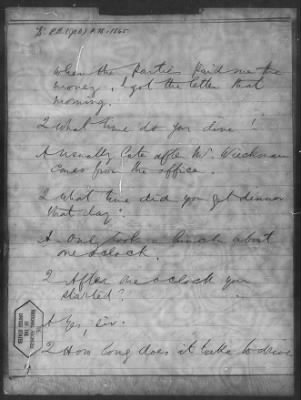 when the parties paid me the
money. I got the letter that
morning.
Q What time do you dine?
A Usually late after Mr. Wieckman
comes from the office.
Q What time did you get dinner
that day?
A Only took a lunch about
one o'clock.
Q After one o'clock you
started?
A Yes, sir.
Q How long does it take to drive